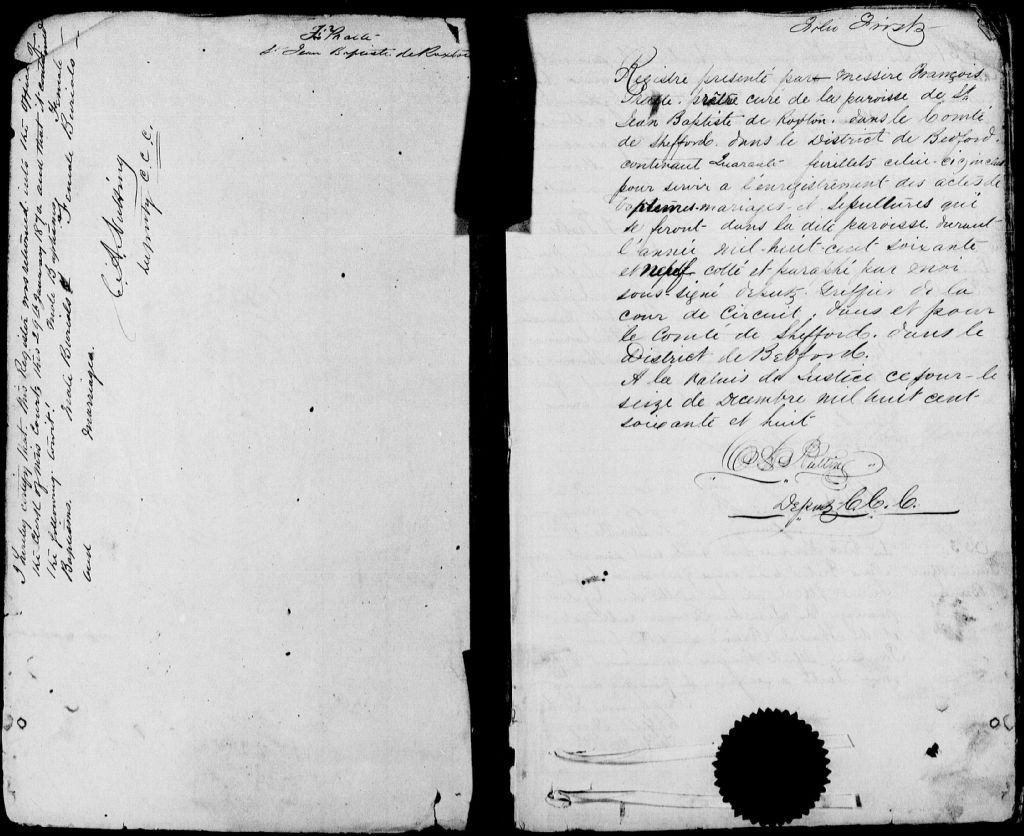 St Jean Baptiste de Roxton
I hereby certify that this Register was returned into the office of
the Clerk of this Court this 29th January 1870 and that it contains
the following Count: Male Baptisms Female
Baptisms. Male Burials & Female Burials
and marriages.
C. A. Nutting
Deputy C. C. C.
Folio First
Registre présenté par messire François
prêtre curé de la paroisse de St
Jean Baptiste de Roxton. dans le Comté
de Shefford. dans le District de Bedford.
contenant Quarante feuillets celui-ci
pour servir a l'enregistrement des actes de
baptemes-mariages et sepultures qui
se feront dans la dite paroisse durant
l'année mil-huit-cent soixante
et neuf cotté et paraphé par moi
sous-signé Greffier de la
cour de circuit, dans et pour
le Comté de Shefford. dans le
District de Bedford.
A la Palais de Justice ce jour-le
seize de Decembre mil huit cent
soixante et huit
Deputy C. C. C.